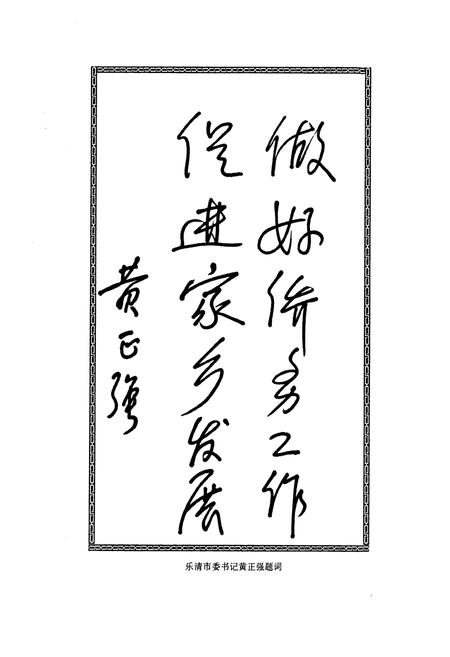 做好侨务工作
促进家乡发展
黄正强
乐清市委书记黄正强题词